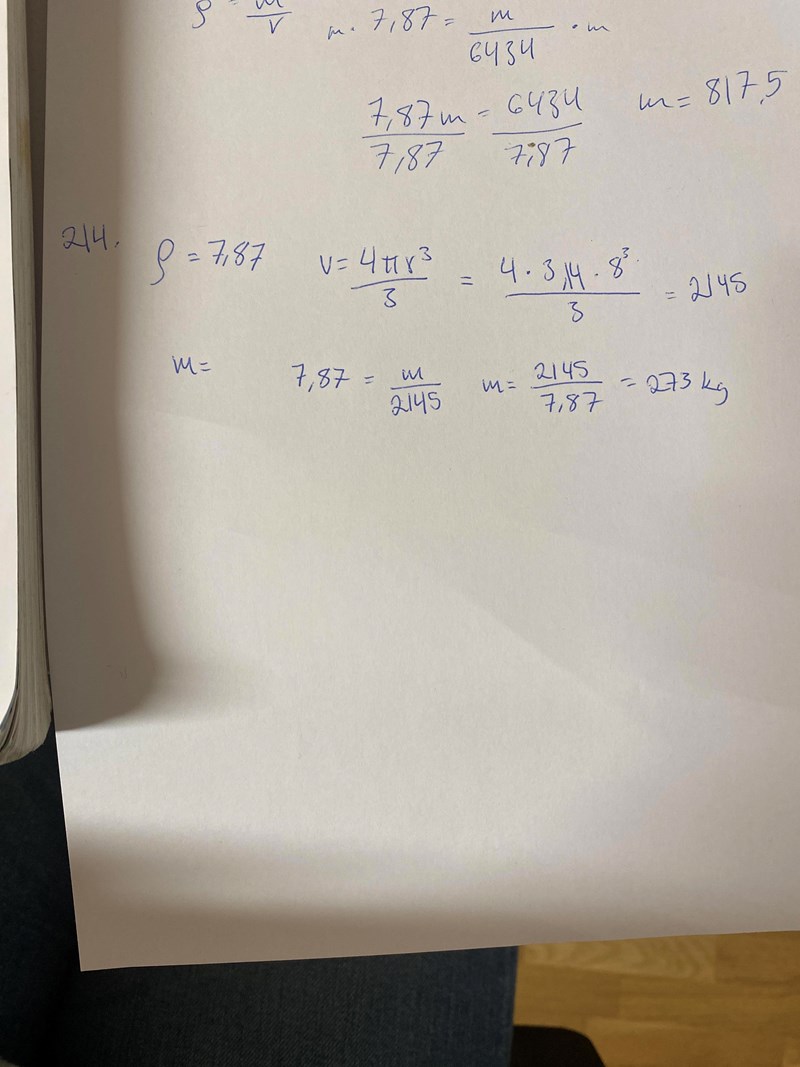 ρ = m/v m · 7,87 = m/6434 · m
7,87m/7,87 = 6434/7,87 m = 817,5
214. ρ = 7,87 v = 4πr³/3 = 4 · 3,14 · 8³/3 = 2145
m= 7,87 = m/2145 m = 2145/7,87 = 273 kg